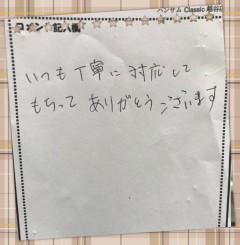 ハンサム Classic 越谷店
コメント記入欄
いつも丁寧に対応して
もらって ありがとうございます